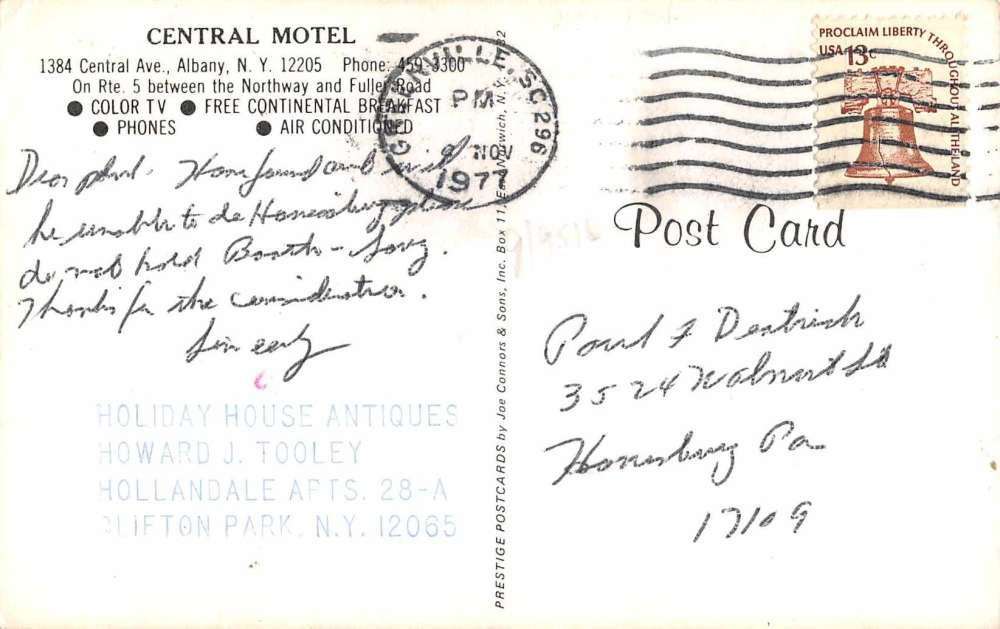 CENTRAL MOTEL
1384 Central Ave., Albany, N. Y. 12205 Phone: 459-3300
On Rte. 5 between the Northway and Fuller Road
● COLOR TV ● FREE CONTINENTAL BREAKFAST
● PHONES ● AIR CONDITIONED
GREENVILLE, SC 296
PM
NOV
1977
PROCLAIM LIBERTY THROUGHOUT ALL THE LAND
USA 13c
Dear Have found and will
be unable to do show
do not hold Booth - Sorry.
Thanks for the consideration.
Sincerely
HOLIDAY HOUSE ANTIQUES
HOWARD J. TOOLEY
HOLLANDALE APTS. 28-A
CLIFTON PARK, N.Y. 12065
PRESTIGE POSTCARDS by Joe Connors & Sons, Inc. Box 11, East Norwich, N.Y.
Post Card
Paul F
3524 Walnut St
Pa
17109